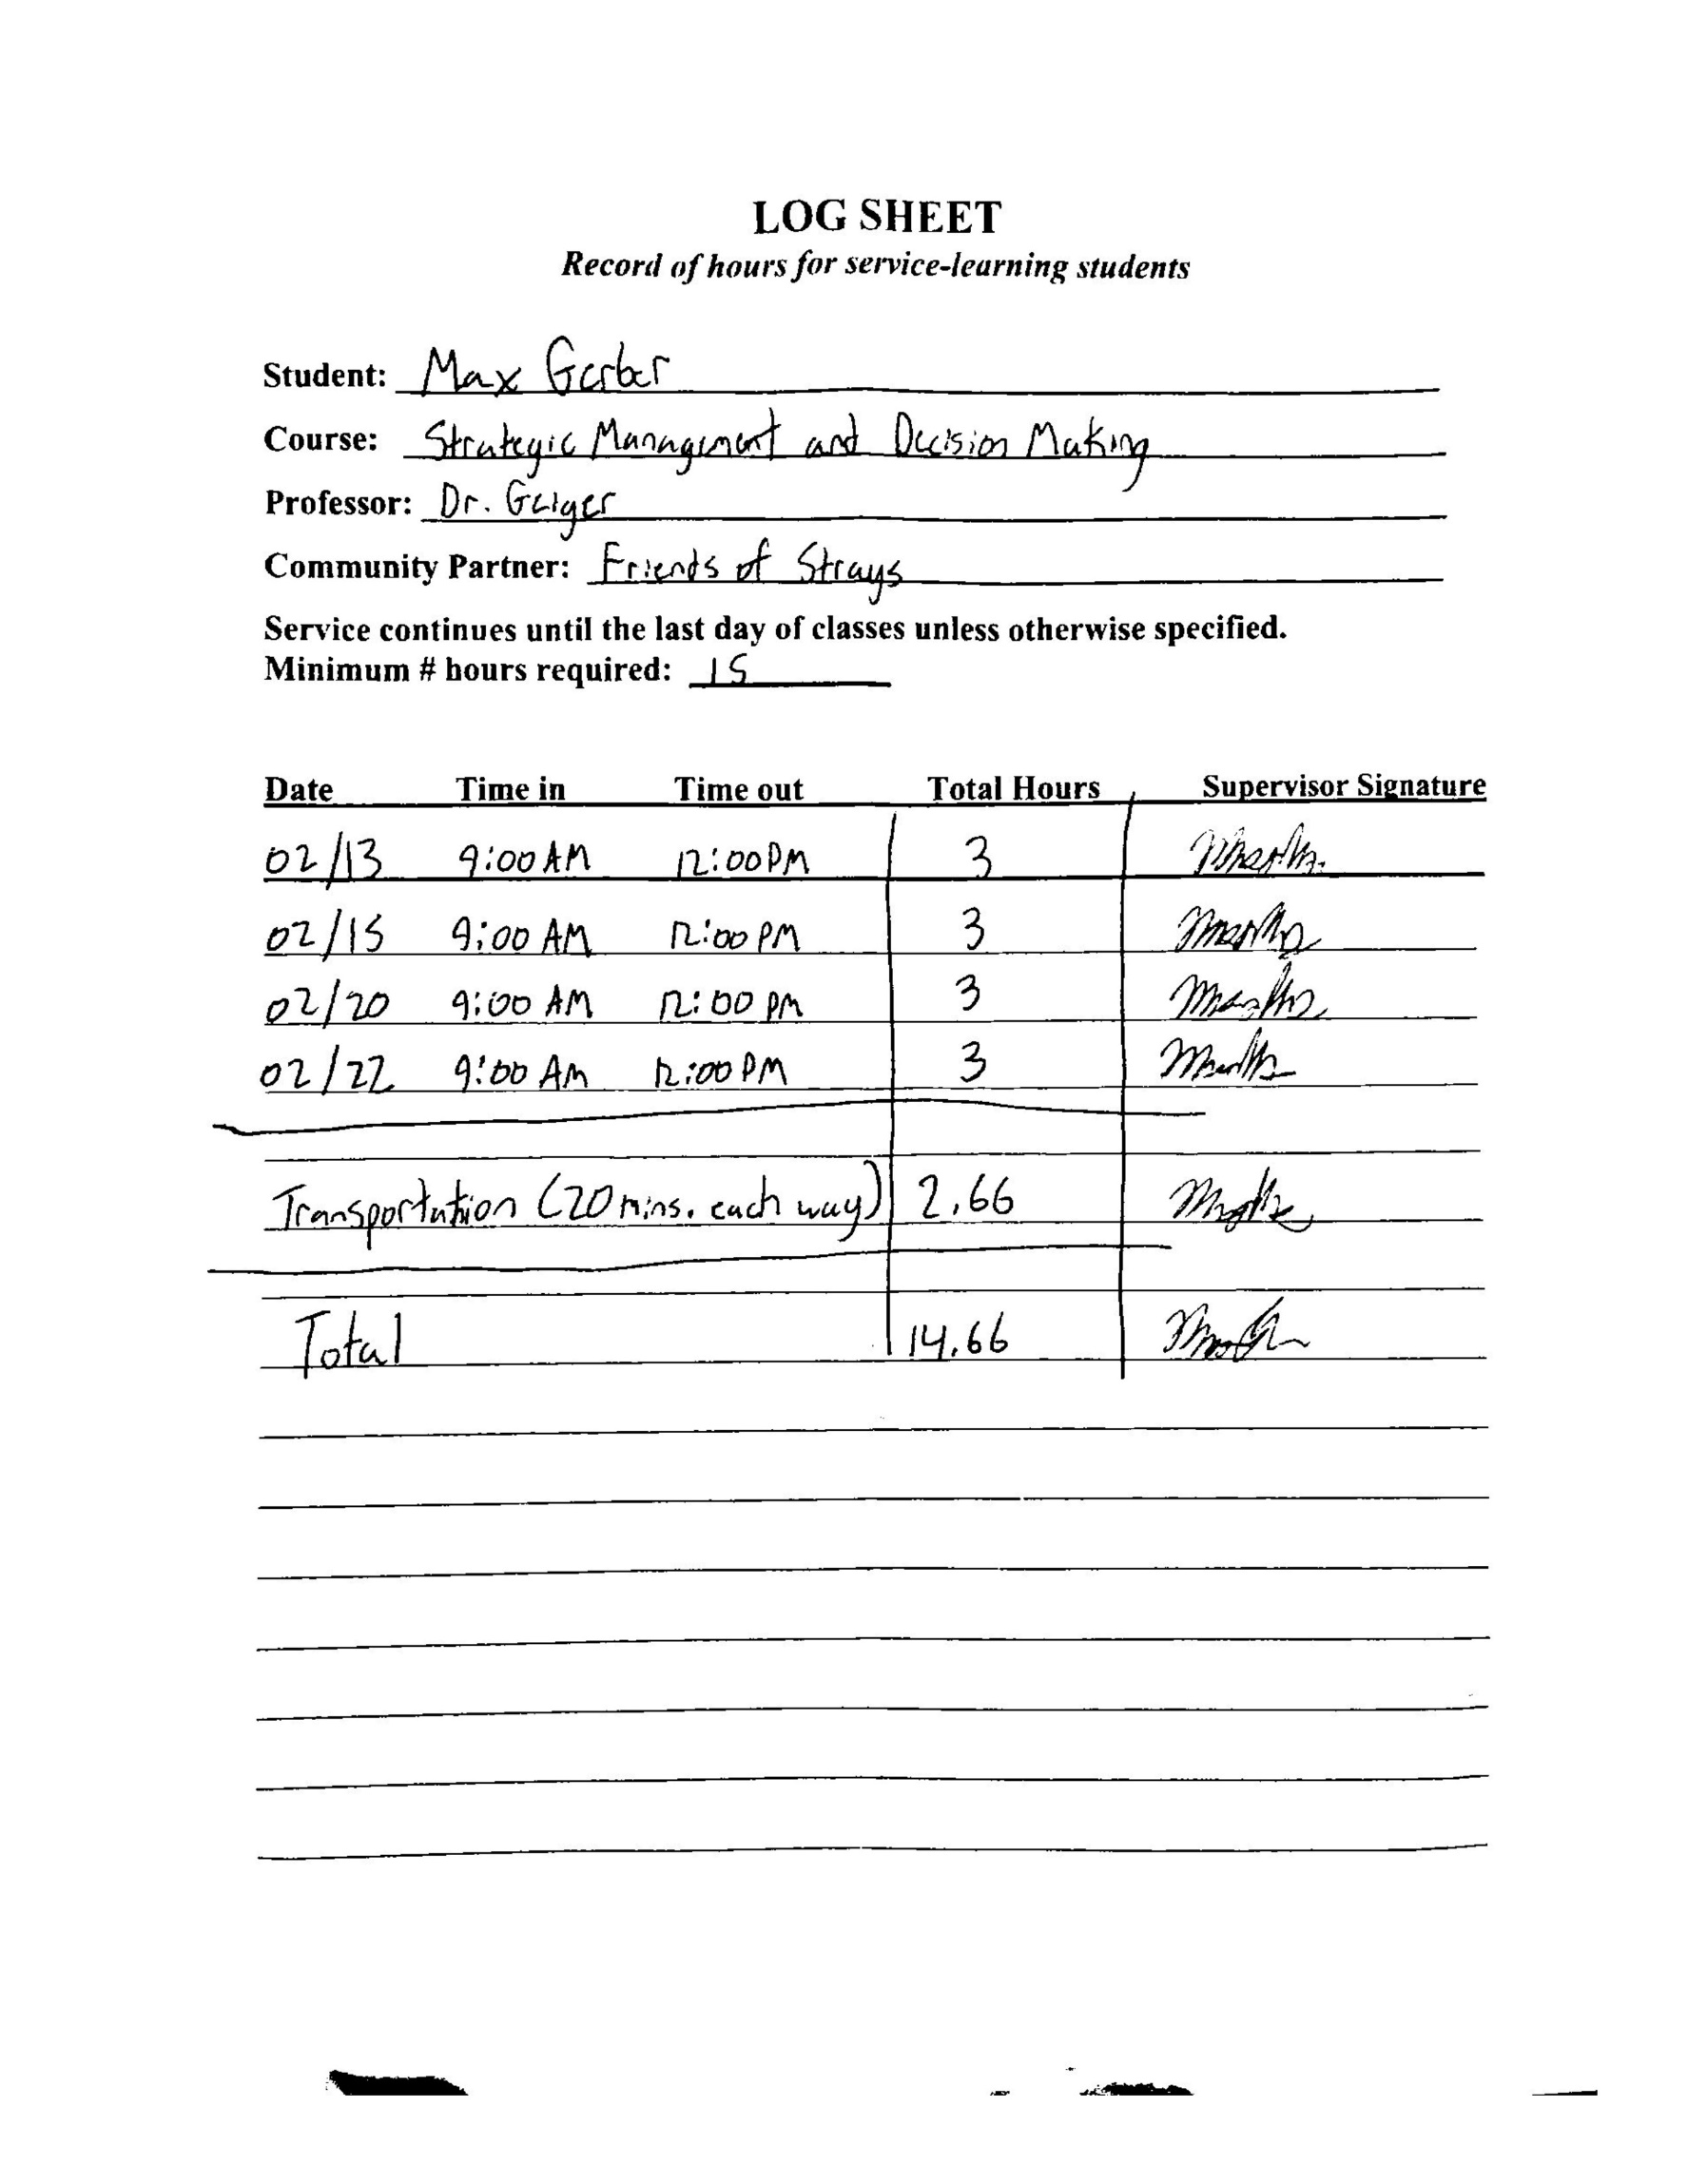 LOG SHEET
Record of hours for service-learning students
Student: Max Gerber
Course: Strategic Management and Decision Making
Professor: Dr. Geiger
Community Partner: Friends of Strays
Service continues until the last day of classes unless otherwise specified.
Minimum # hours required: 15
Date Time in Time out Total Hours Supervisor Signature
02/13 9:00 AM 12:00 PM 3
02/15 9:00 AM 12:00 PM 3
02/20 9:00 AM 12:00 PM 3
02/22 9:00 AM 12:00 PM 3
Transportation (20 mins. each way) 2.66
Total 14.66